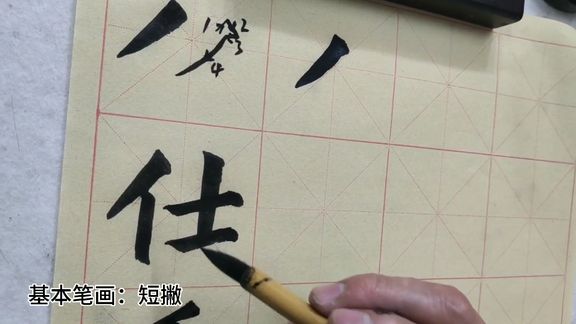 1 2
3
4
仕
基本笔画：短撇